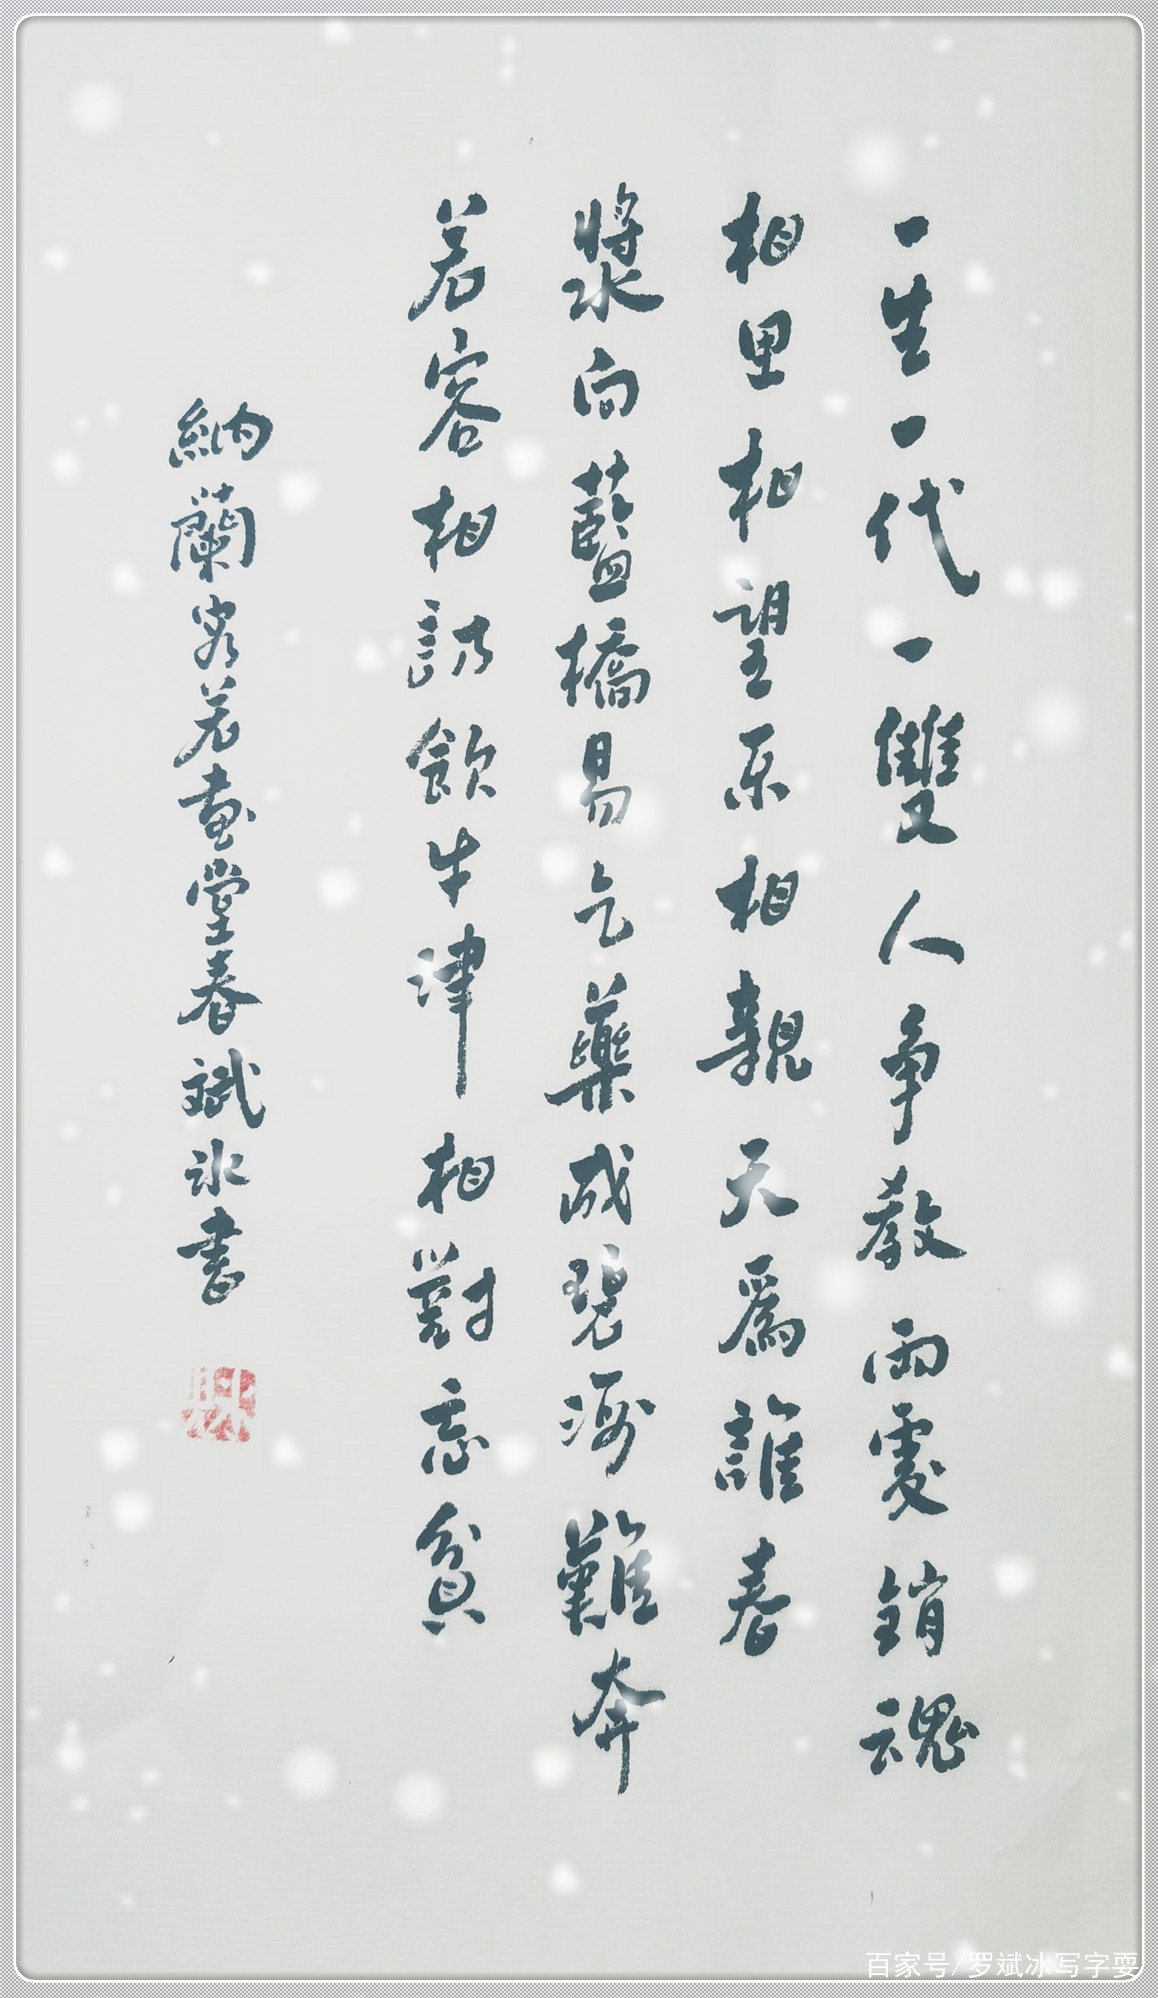 一生一代一雙人争教兩處銷魂
相思相望不相親天爲誰春
漿向藍橋易乞藥成碧海難奔
若容相訪飲牛津相對忘貧
納蘭容若畫堂春斌冰書
百家号/罗斌冰写字耍